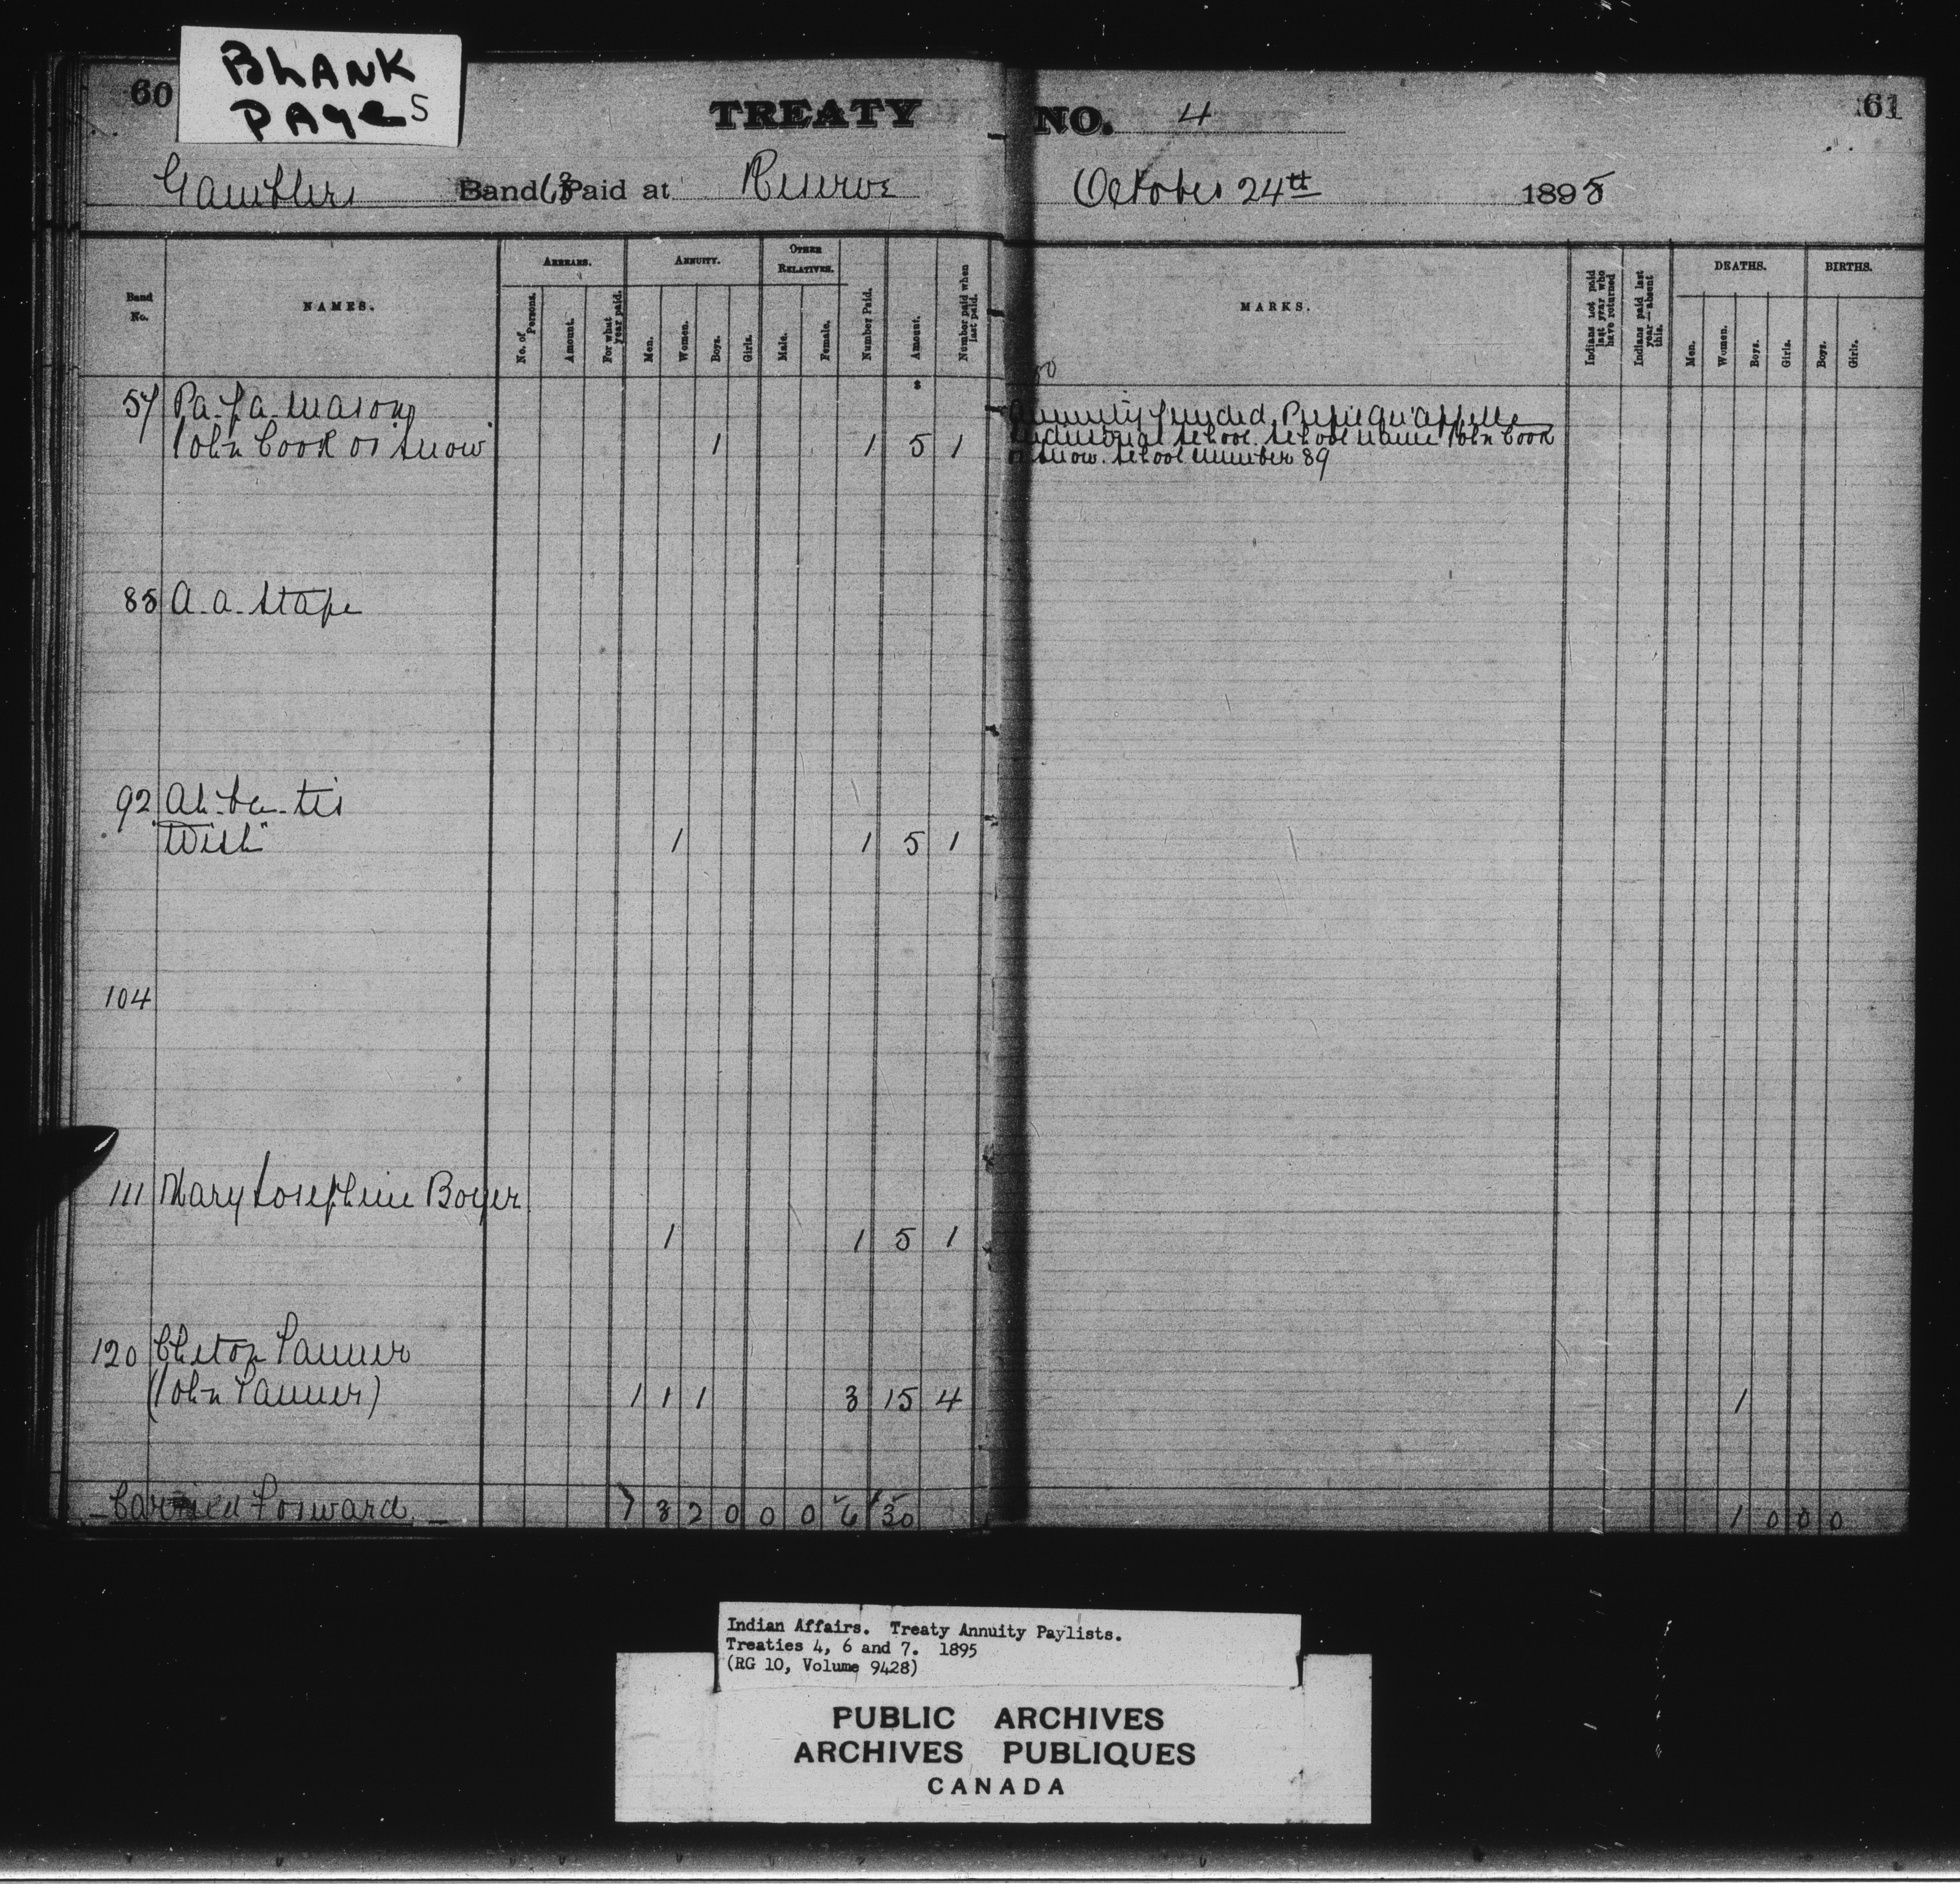 BLANK
PAGES
60
TREATY NO. 4
61
Gamblers Band 63 Paid at Reserve October 24th 1895
Band No.
NAMES.
ARREARS.
No. of Persons.
Amount.
For what year paid.
ANNUITY.
Men.
Women.
Boys.
Girls.
OTHER RELATIVES.
Male.
Female.
Number Paid.
Amount.
Number paid when last paid.
MARKS.
Indians not paid last year who have returned
Indians paid last year—absent this.
DEATHS.
Men.
Women.
Boys.
Girls.
BIRTHS.
Boys.
Girls.
57
John Cook or Snow 1 1 5 1
Annuity funded. Pupil Qu'appelle
Industrial School. School name John Cook
or Snow. School number 89
85 A-a-stape
92
"Wish" 1 1 5 1
104
111 Mary Josephine Boyer
1 1 5 1
120 Tanner
(John Tanner) 1 1 1 3 15 4 1
Carried Forward 1 3 2 0 0 0 6 30 1 0 0 0
Indian Affairs. Treaty Annuity Paylists.
Treaties 4, 6 and 7. 1895
(RG 10, Volume 9428)
PUBLIC ARCHIVES
ARCHIVES PUBLIQUES
CANADA